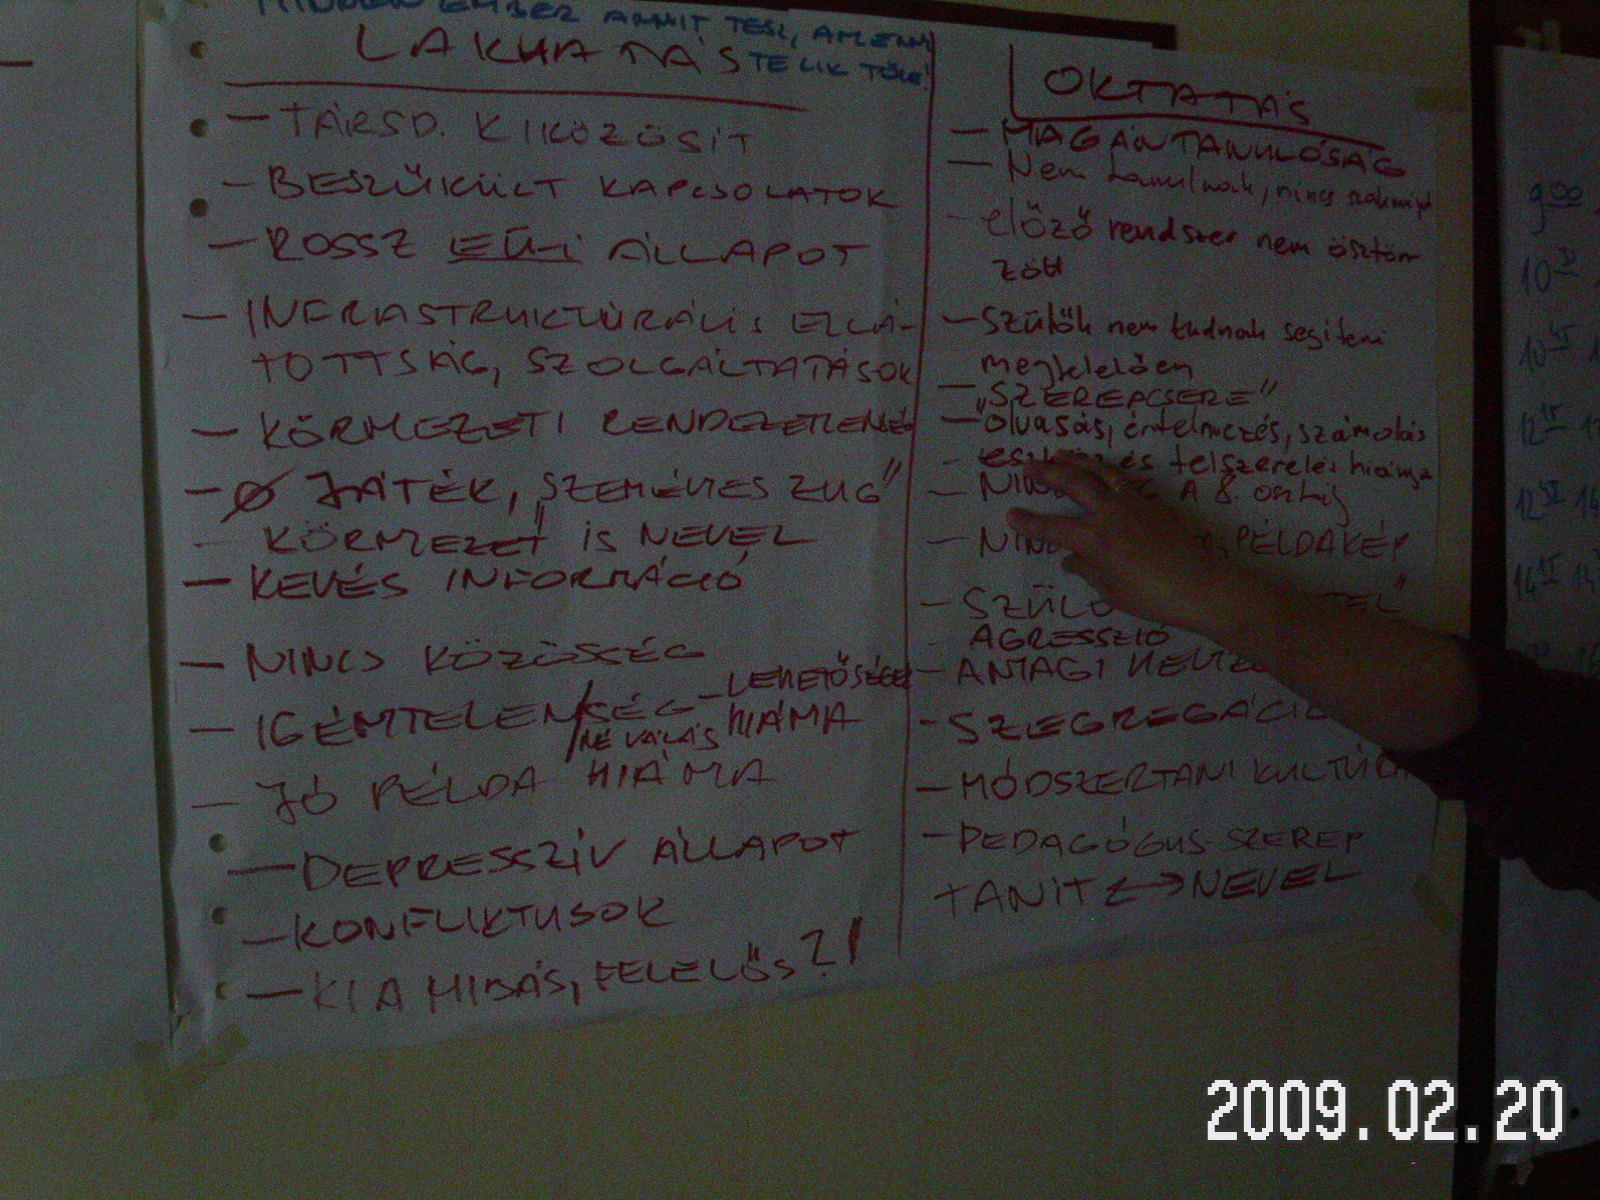 MINDEN EMBER ANNIT TESZ, AMENNYI
TELIK TŐLE!
LAKHATÁS
— TÁRSD. KIKÖZÖSÍT
— BESZŰKÜLT KAPCSOLATOK
— ROSSZ EÜ-I ÁLLAPOT
— INFRASTRUKTÚRÁLIS ELLÁ-
TOTTSÁG, SZOLGÁLTATÁSOK
— KÖRNYEZETI RENDEZETLENSÉG
— Ø JÁTÉK, "SZEMÉLYES ZUG"
— KÖRNYEZET IS NEVEL
— KEVÉS INFORMÁCIÓ
— NINCS KÖZÖSSÉG
— IGÉNYTELENSÉG – LEHETŐSÉGEK
HIÁNYA
/NÉ VÁLÁS
— JÓ PÉLDA HIÁNYA
— DEPRESSZÍV ÁLLAPOT
— KONFLIKTUSOK
— KI A HIBÁS, FELELŐS?!
OKTATÁS
— MAGÁNTANULÓSÁG
— Nem tanulnak, nincs
— előző rendszer nem ösztön
zött
— Szülők nem tudnak segíteni
megfelelően
— "SZEREPCSERE"
— olvasás, értelmezés, számolás
— és felszerelés hiánya
— A 8. oszt
— PÉLDAKÉP
— AGRESSZIÓ
— ANYAGI
— SZEGREGÁCIÓ
— MÓDSZERTANI KULTÚRA
— PEDAGÓGUS-SZEREP
TANÍT ↔ NEVEL
9 00
10 30
10 45
12 15
14 15
2009.02.20